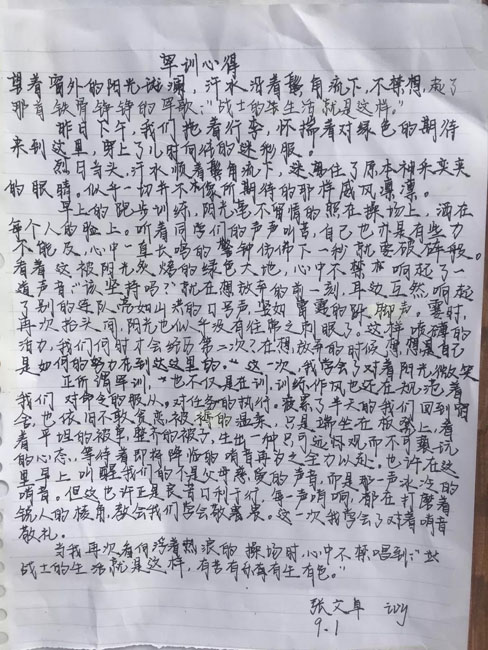 军训心得
望着窗外的阳光斑斓,汗水沿着鬓角流下,不禁想起了
那首铁骨铮铮的军歌:"战士的生活就是这样。"
昨日下午,我们拖着行李,怀揣着对绿色的期待
来到这里,穿上了儿时向往的迷彩服。
烈日当头,汗水顺着鬓角流下,迷离住了原本神采奕奕
的眼睛。似乎一切并不像所期待的那样威风凛凛。
早上的跑步训练,阳光毫不留情的照在操场上,洒在
每个人的脸上。听着同学们的声声叫苦,自己也亦是有些力
不能及,心中一直长鸣的警钟仿佛下一秒就要破碎般。
看着这被阳光炙烤的绿色大地,心中不禁响起了一
道声音:"该坚持吗?"就在想放弃的前一刻,耳边互然响起
了别的连队亮如山洪的口号声,坚如雷霆的脚声。霎时,
再次抬头间,阳光也似乎没有往常之刺眼了。这样
活力,我们何时才会经历第二次?在想放弃的时候想想是自己
是如何的努力在到这这里的。"这一次,我学会了对着阳光微笑
正所谓军训,"也不仅是在训,训练作风也还在规范着
我们对命令的服从。对任务的执行。疲累了半天的我们回到宿
舍,也依旧不敢贪恋被褥的温柔,只是端坐在板凳上,看
着平坦的被单,整齐的被子,生出一种只可远观而不可亵玩
的心态,等待着即将降临的哨音再为之全力以赴。也许在这
里早上叫醒我们的不是父母慈爱的声音,而是那一声冰冷的
哨音。但这也许正是良苦口利于行,每一声哨响,都在打磨着
锐人的棱角,教会我们学会敬畏。这一次我学会了对着哨音
敬礼。
当我再次看向浮着热浪的操场时,心中不禁唱到:"
战士的生活就是这样,有苦有有生有色。"
张文卓
9.1